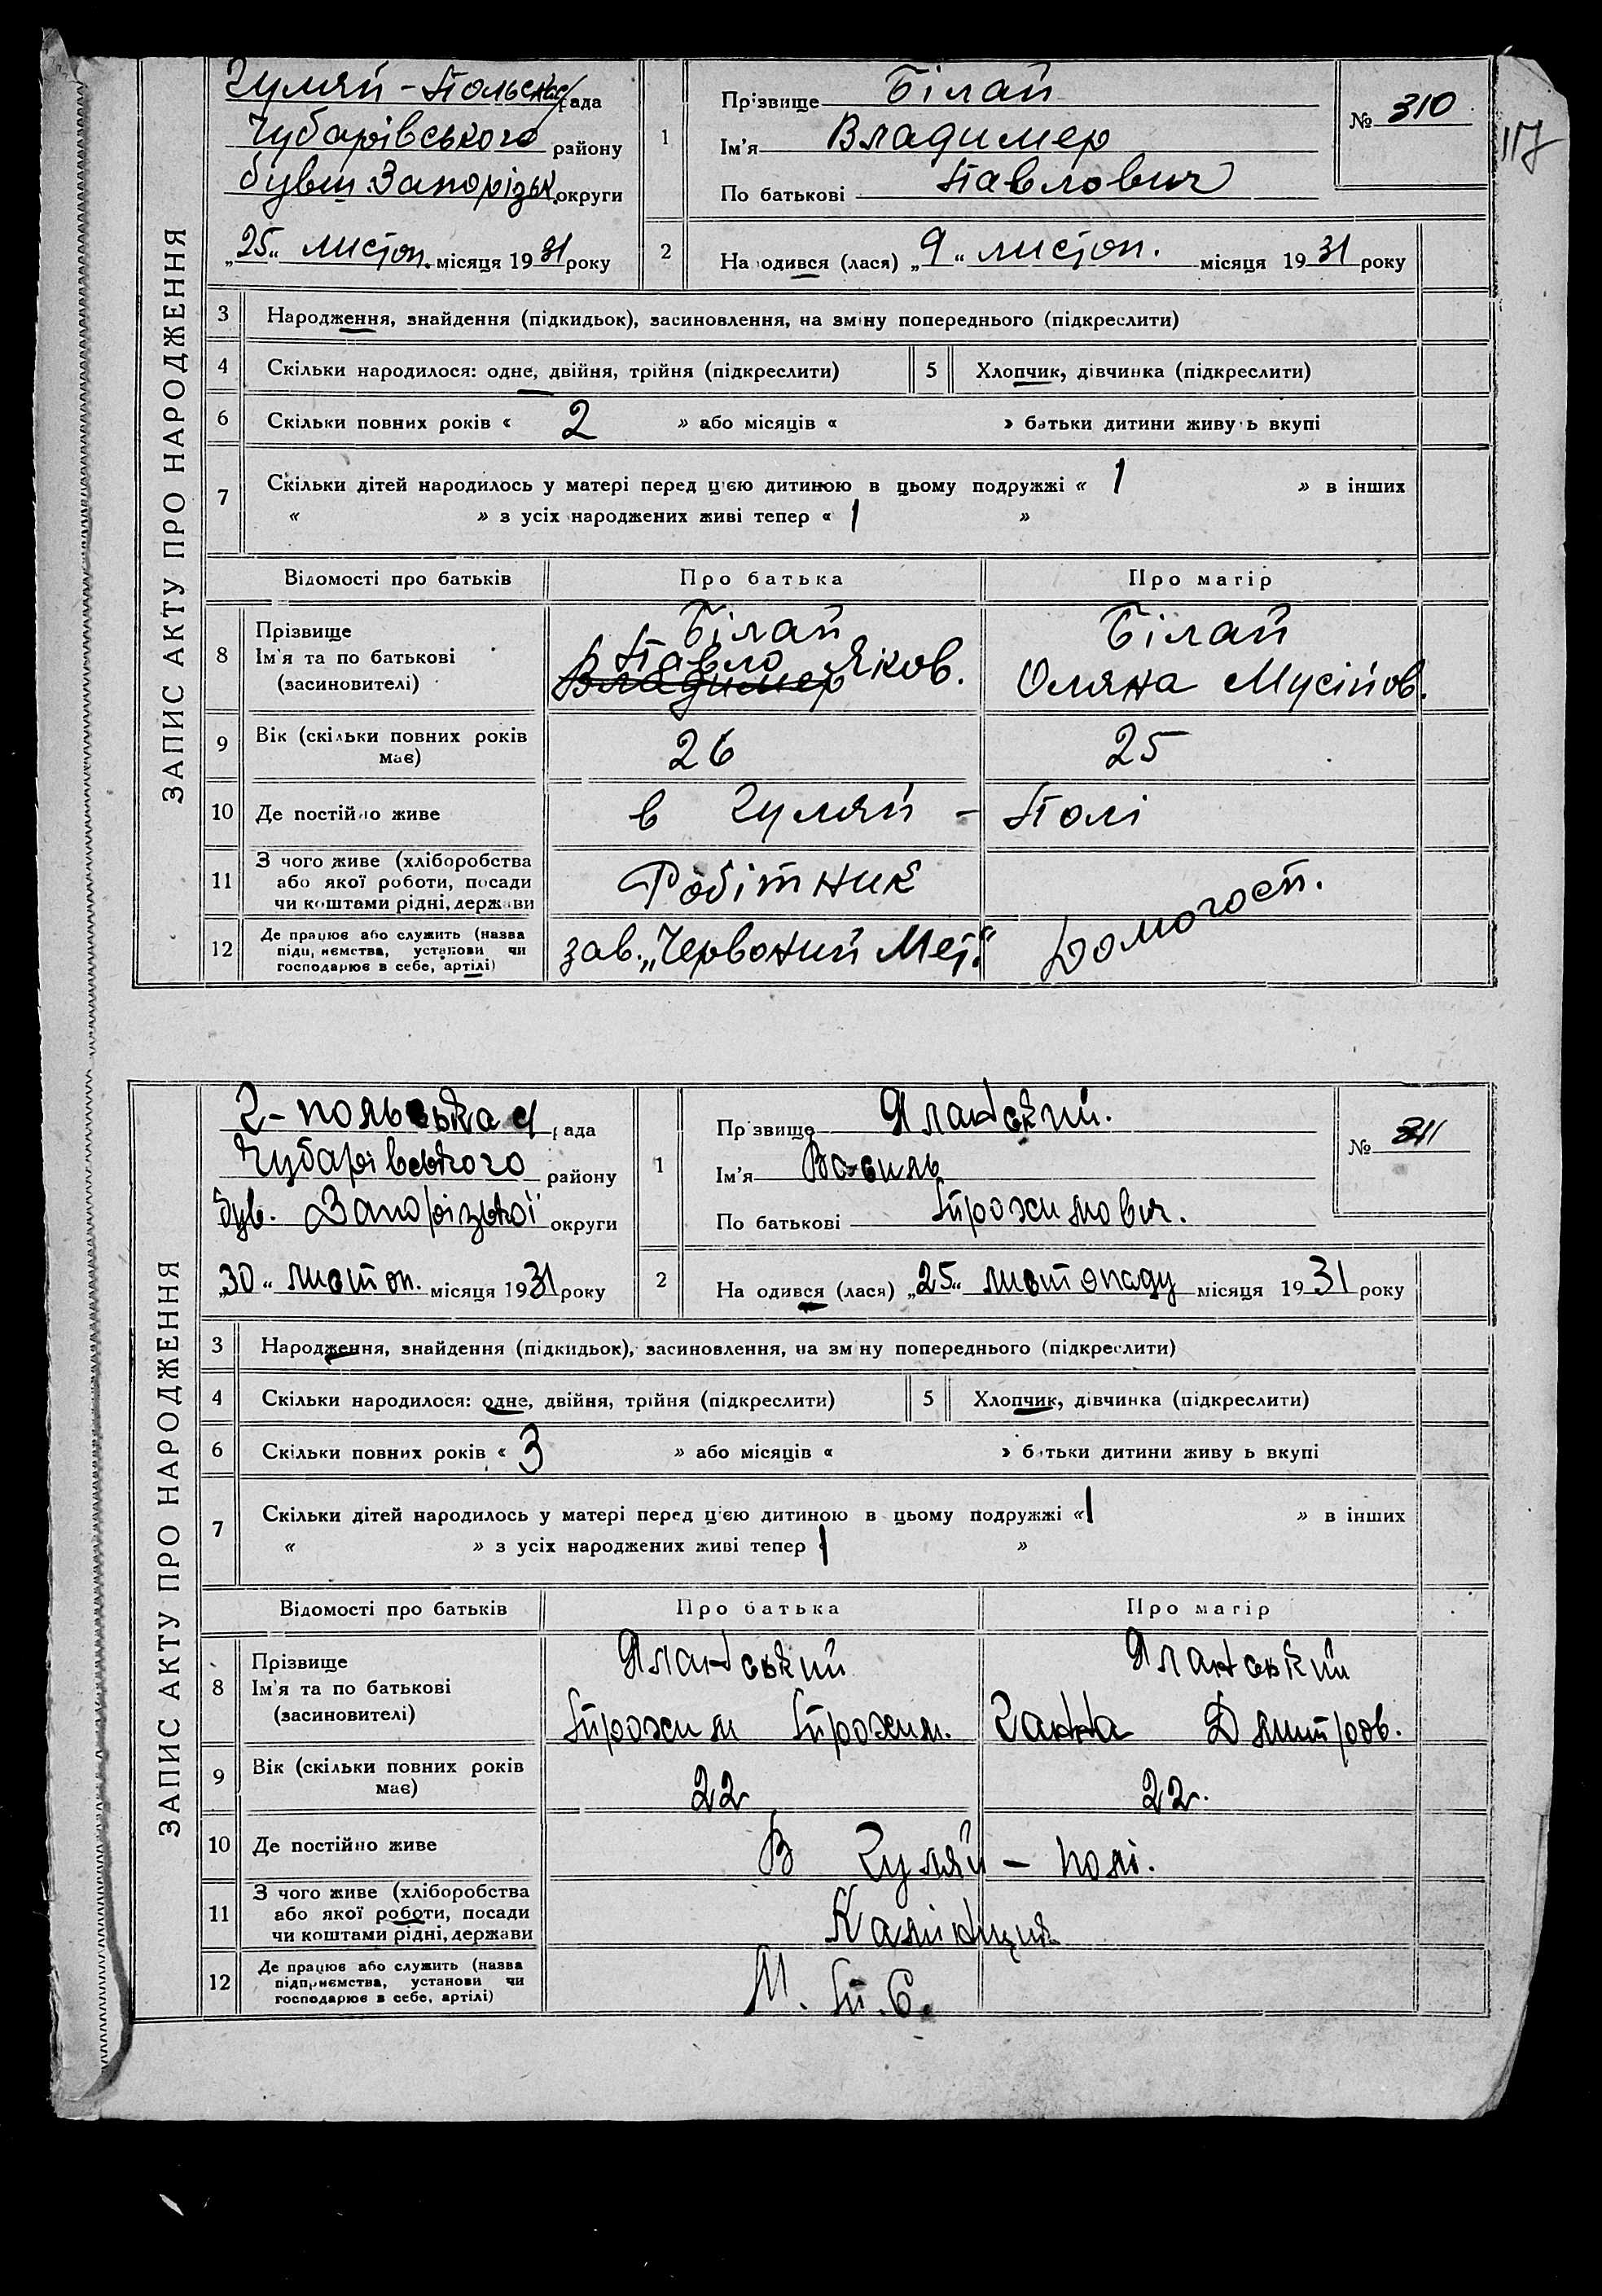 117
ЗАПИС АКТУ ПРО НАРОДЖЕННЯ
Гуляй-Польська рада
Чубарівського району
бувш. Запорізьк. округи
„25“ листоп. місяця 1931 року
1
Прізвище Білай
Ім'я Владимер
По батькові Павлович
№ 310
2
Народився (лася) „9“ листоп. місяця 1931 року
3 Народження, знайдення (підкидьок), засиновлення, на зміну попереднього (підкреслити)
4 Скільки народилося: одне, двійня, трійня (підкреслити)
5 Хлопчик, дівчинка (підкреслити)
6 Скільки повних років « 2 » або місяців « » батьки дитини живуть вкупі
7 Скільки дітей народилось у матері перед ц'єю дитиною в цьому подружжі « 1 » в інших
« » з усіх народжених живі тепер « 1 »
Відомості про батьків Про батька Про матір
8 Прізвище
Ім'я та по батькові
(засиновителі)
Білай
Павло Яков.
Владимер
Білай
Оляна Мусійов.
9 Вік (скільки повних років
має)
26 25
10 Де постійно живе в Гуляй - Полі
11 З чого живе (хліборобства
або якої роботи, посади
чи коштами рідні, держави
Робітник
Домогосп.
12 Де працює або служить (назва
підприємства, установи чи
господарює в себе, артілі)
зав. „Червоний Мет.“
ЗАПИС АКТУ ПРО НАРОДЖЕННЯ
Г-польська рада
Чубарівського району
був. Запорізької округи
„30“ листоп. місяця 1931 року
1
Прізвище Яланський.
Ім'я Василь
По батькові Трохимович.
№ 311
2
Народився (лася) „25“ листопаду місяця 1931 року
3 Народження, знайдення (підкидьок), засиновлення, на зміну попереднього (підкреслити)
4 Скільки народилося: одне, двійня, трійня (підкреслити)
5 Хлопчик, дівчинка (підкреслити)
6 Скільки повних років « 3 » або місяців « » батьки дитини живуть вкупі
7 Скільки дітей народилось у матері перед ц'єю дитиною в цьому подружжі « 1 » в інших
« » з усіх народжених живі тепер « 1 »
Відомості про батьків Про батька Про матір
8 Прізвище
Ім'я та по батькові
(засиновителі)
Яланський
Трохим Трохим.
Яланський
Ганна Дмитров.
9 Вік (скільки повних років
має)
22 22.
10 Де постійно живе В Гуляй - полі.
11 З чого живе (хліборобства
або якої роботи, посади
чи коштами рідні, держави
12 Де працює або служить (назва
підприємства, установи чи
господарює в себе, артілі)
М. Т. С.